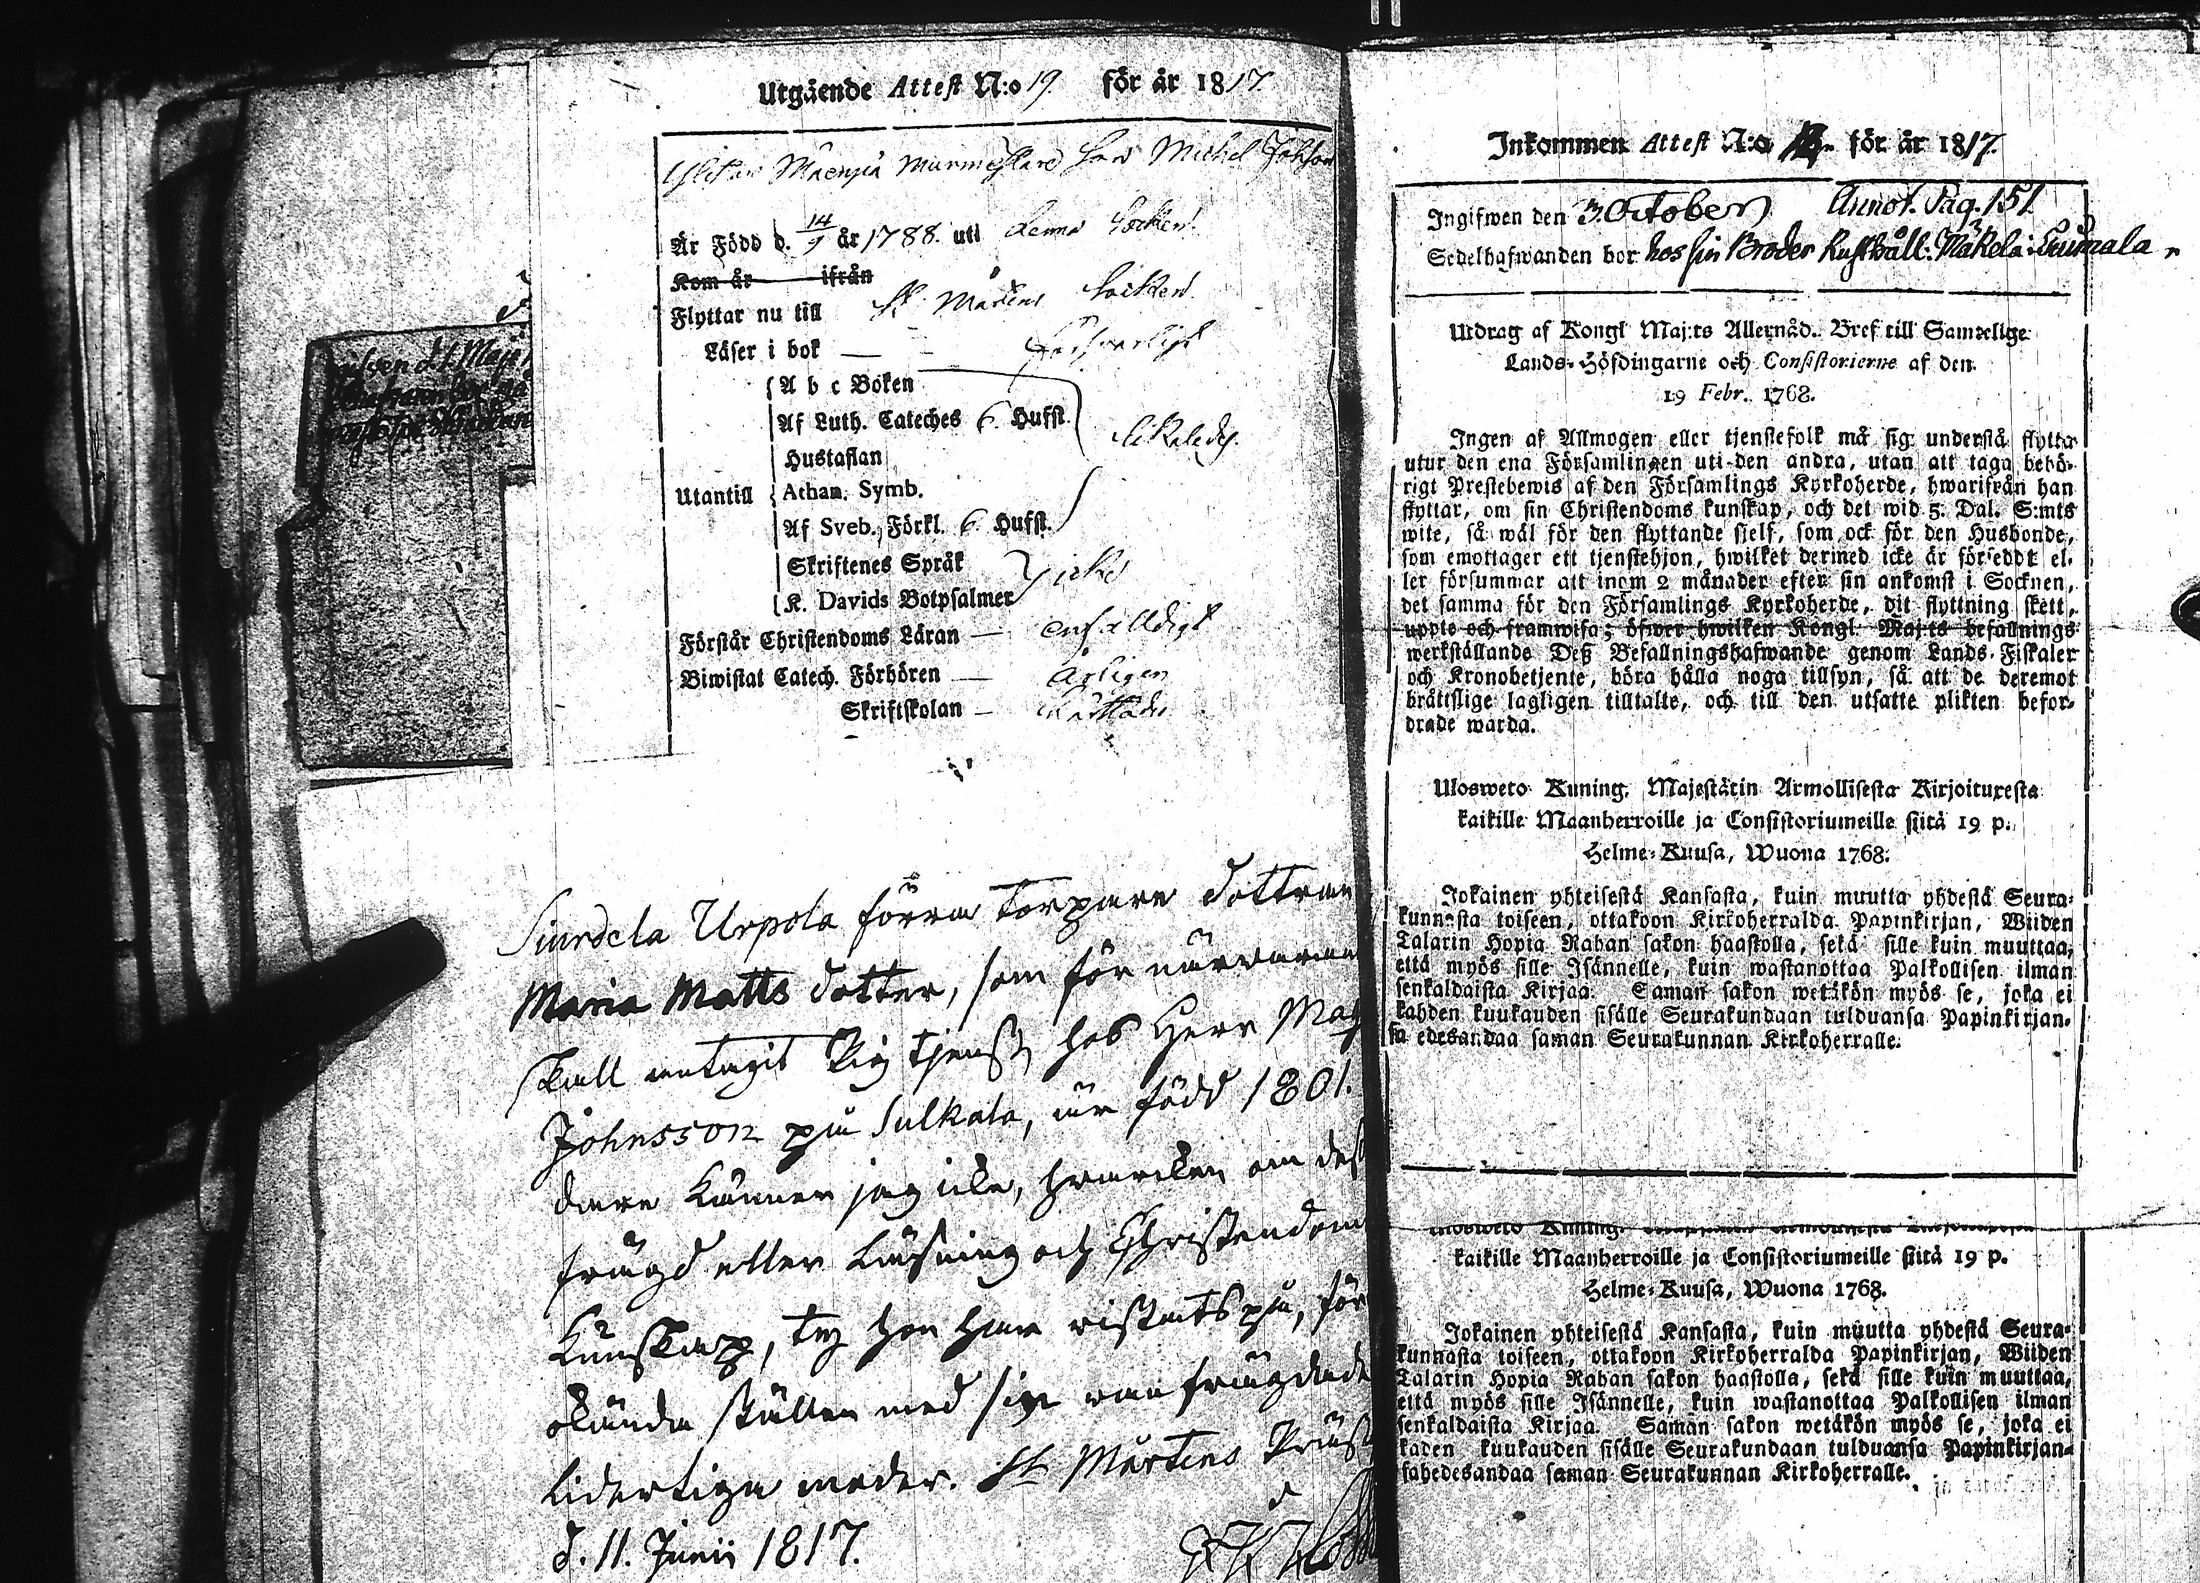 Utgående Attest N:o 19 för år 1817.
Mäenpä Murmestare Son Michel Johsson
Är Född d. 14/9 år 1788. uti denna Socken.
Kom år ifrån
Flyttar nu till St. Mårtens Socken.
Läser i bok — Försvarligt
A b c Boken
Af Luth. Cateches 6. Hufst. likaledes
Hustaflan
Utantill Athan. Symb.
Af Sveb. Förkl. 6. Hufst.
Skriftenes Språk icke
K. Davids Botpsalmer
Förstår Christendoms Läran — enfalldigt
Biwistat Catech. Förhören — Årligen
Skriftskolan —
Suurdela Urpola förra Torpare dottren
Maria Matts dotter, som för närwaran
skall antagit Pig tjenst hos Herr Mag
Johnsson på Sulkala, är född 1801.
dare känner jag icke, hwarcken om des
frägd eller Läsning och Christendom
Kunskap, ty hon har wistats på, för
okända ställen med sin wanfrägdade
liderliga moder. St Mårtens Präst
d. 11. Junii 1817.
Inkommen Attest N:o för år 1817.
Ingifwen den 3. October Annot. Pag. 151
Sedelhafwanden bor hos sin Broder Rusthåll: Mäkelä i Luumala
Utdrag af Kongl Maj:ts Allernåd. Bref till Samtelige
Lands-Höfdingarne och Consistorierne af den
19 Febr. 1768.
Ingen af Allmogen eller tjenstefolk må sig understå flytta
utur den ena Församlingen uti den andra, utan att taga behö-
rigt Prestebewis af den Församlings Kyrkoherde, hwarifrån han
flyttar, om sin Christendoms kunskap, och det wid 5. Dal. S:mts
wite, så wäl för den flyttande sjelf, som ock för den Husbonde,
som emottager ett tjenstehjon, hwilket dermed icke är försedt el-
ler försummar att inom 2 månader efter sin ankomst i Socknen,
det samma för den Församlings Kyrkoherde, dit flyttning skett,
uppte och framwisa; öfwer hwilken Kongl Maj:ts befallnings
werkställande Deß Befallningshafwande genom Lands-Fiskaler
och Kronobetjente, böra hålla noga tillsyn, så att de deremot
brättslige lagligen tilltalte, och till den utsatte plikten befor-
drade warda.
Ulosweto Kuning. Majestätin Armollisesta Kirjoituxesta
kaikille Maanherroille ja Consistoriumeille siitä 19 p.
Helme-Kuusa, Wuona 1768.
Jokainen yhteisestä Kansasta, kuin muutta yhdestä Seura-
kunnasta toiseen, ottakoon Kirkoherralda Papinkirjan, Wiiden
Talarin Hopia Rahan sakon haastolla, sekä sille kuin muuttaa,
että myös sille Isännelle, kuin wastanottaa Palkollisen ilman
senkaldaista Kirjaa. Saman sakon wetäkön myös se, joka ei
kahden kuukauden sisälle Seurakundaan tulduansa Papinkirjan-
sa edesandaa saman Seurakunnan Kirkoherralle.
Ulosweto Kuning.
kaikille Maanherroille ja Consistoriumeille siitä 19 p.
Helme-Kuusa, Wuona 1768.
Jokainen yhteisestä Kansasta, kuin muutta yhdestä Seura-
kunnasta toiseen, ottakoon Kirkoherralda Papinkirjan, Wiiden
Talarin Hopia Rahan sakon haastolla, sekä sille kuin muuttaa,
että myös sille Isännelle, kuin wastanottaa Palkollisen ilman
senkaldaista Kirjaa. Saman sakon wetäkön myös se, joka ei
kaden kuukauden sisälle Seurakundaan tulduansa Papinkirjan-
sahedesandaa saman Seurakunnan Kirkoherralle.